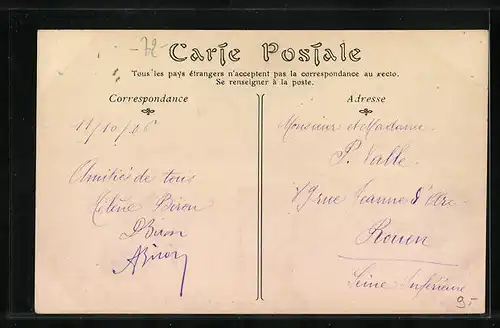 -72-
Carte Postale
Tous les pays étrangers n'acceptent pas la correspondance au recto.
Se renseigner à la poste.
Correspondance
11/10/06
Amitiés de tous
Hélène Biron
D Biron
A Biron
Adresse
Monsieur et Madame
P. Valle
79 rue Jeanne d'Arc
Rouen
Seine Inférieure
95-